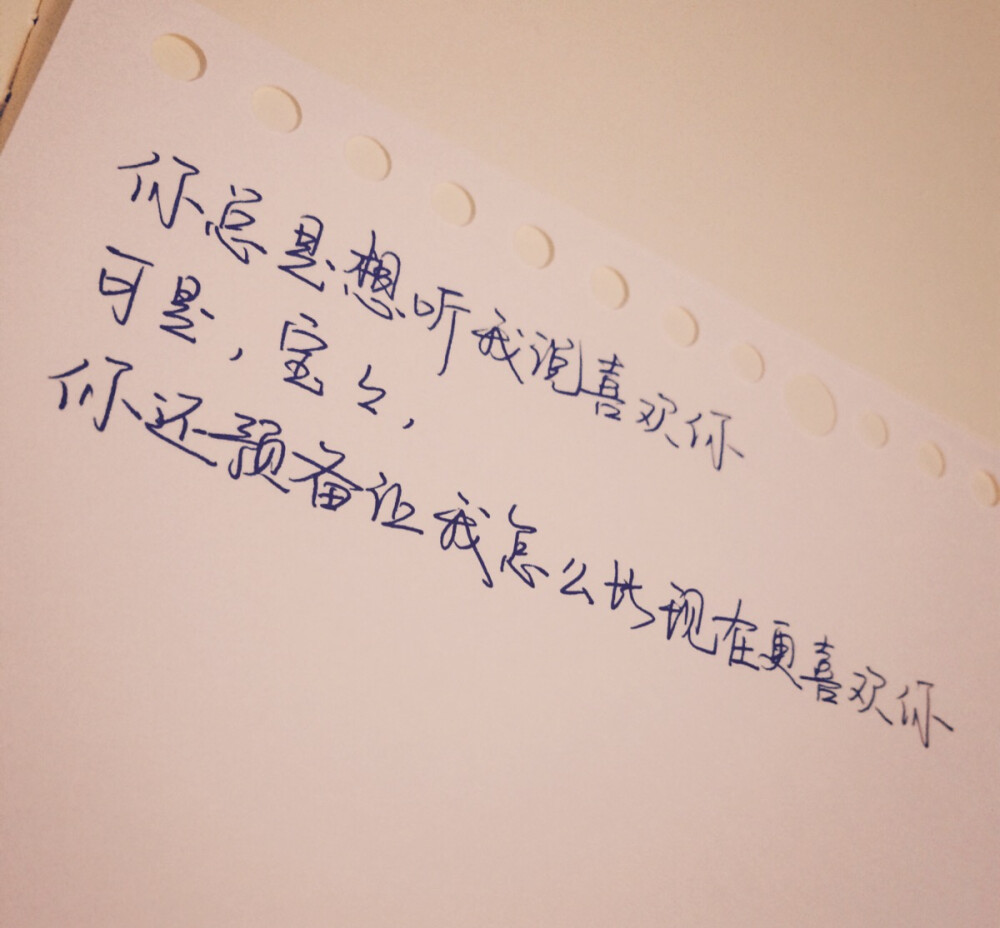 你总是想听我说喜欢你
可是,宝々,
你还预备让我怎么比现在更喜欢你